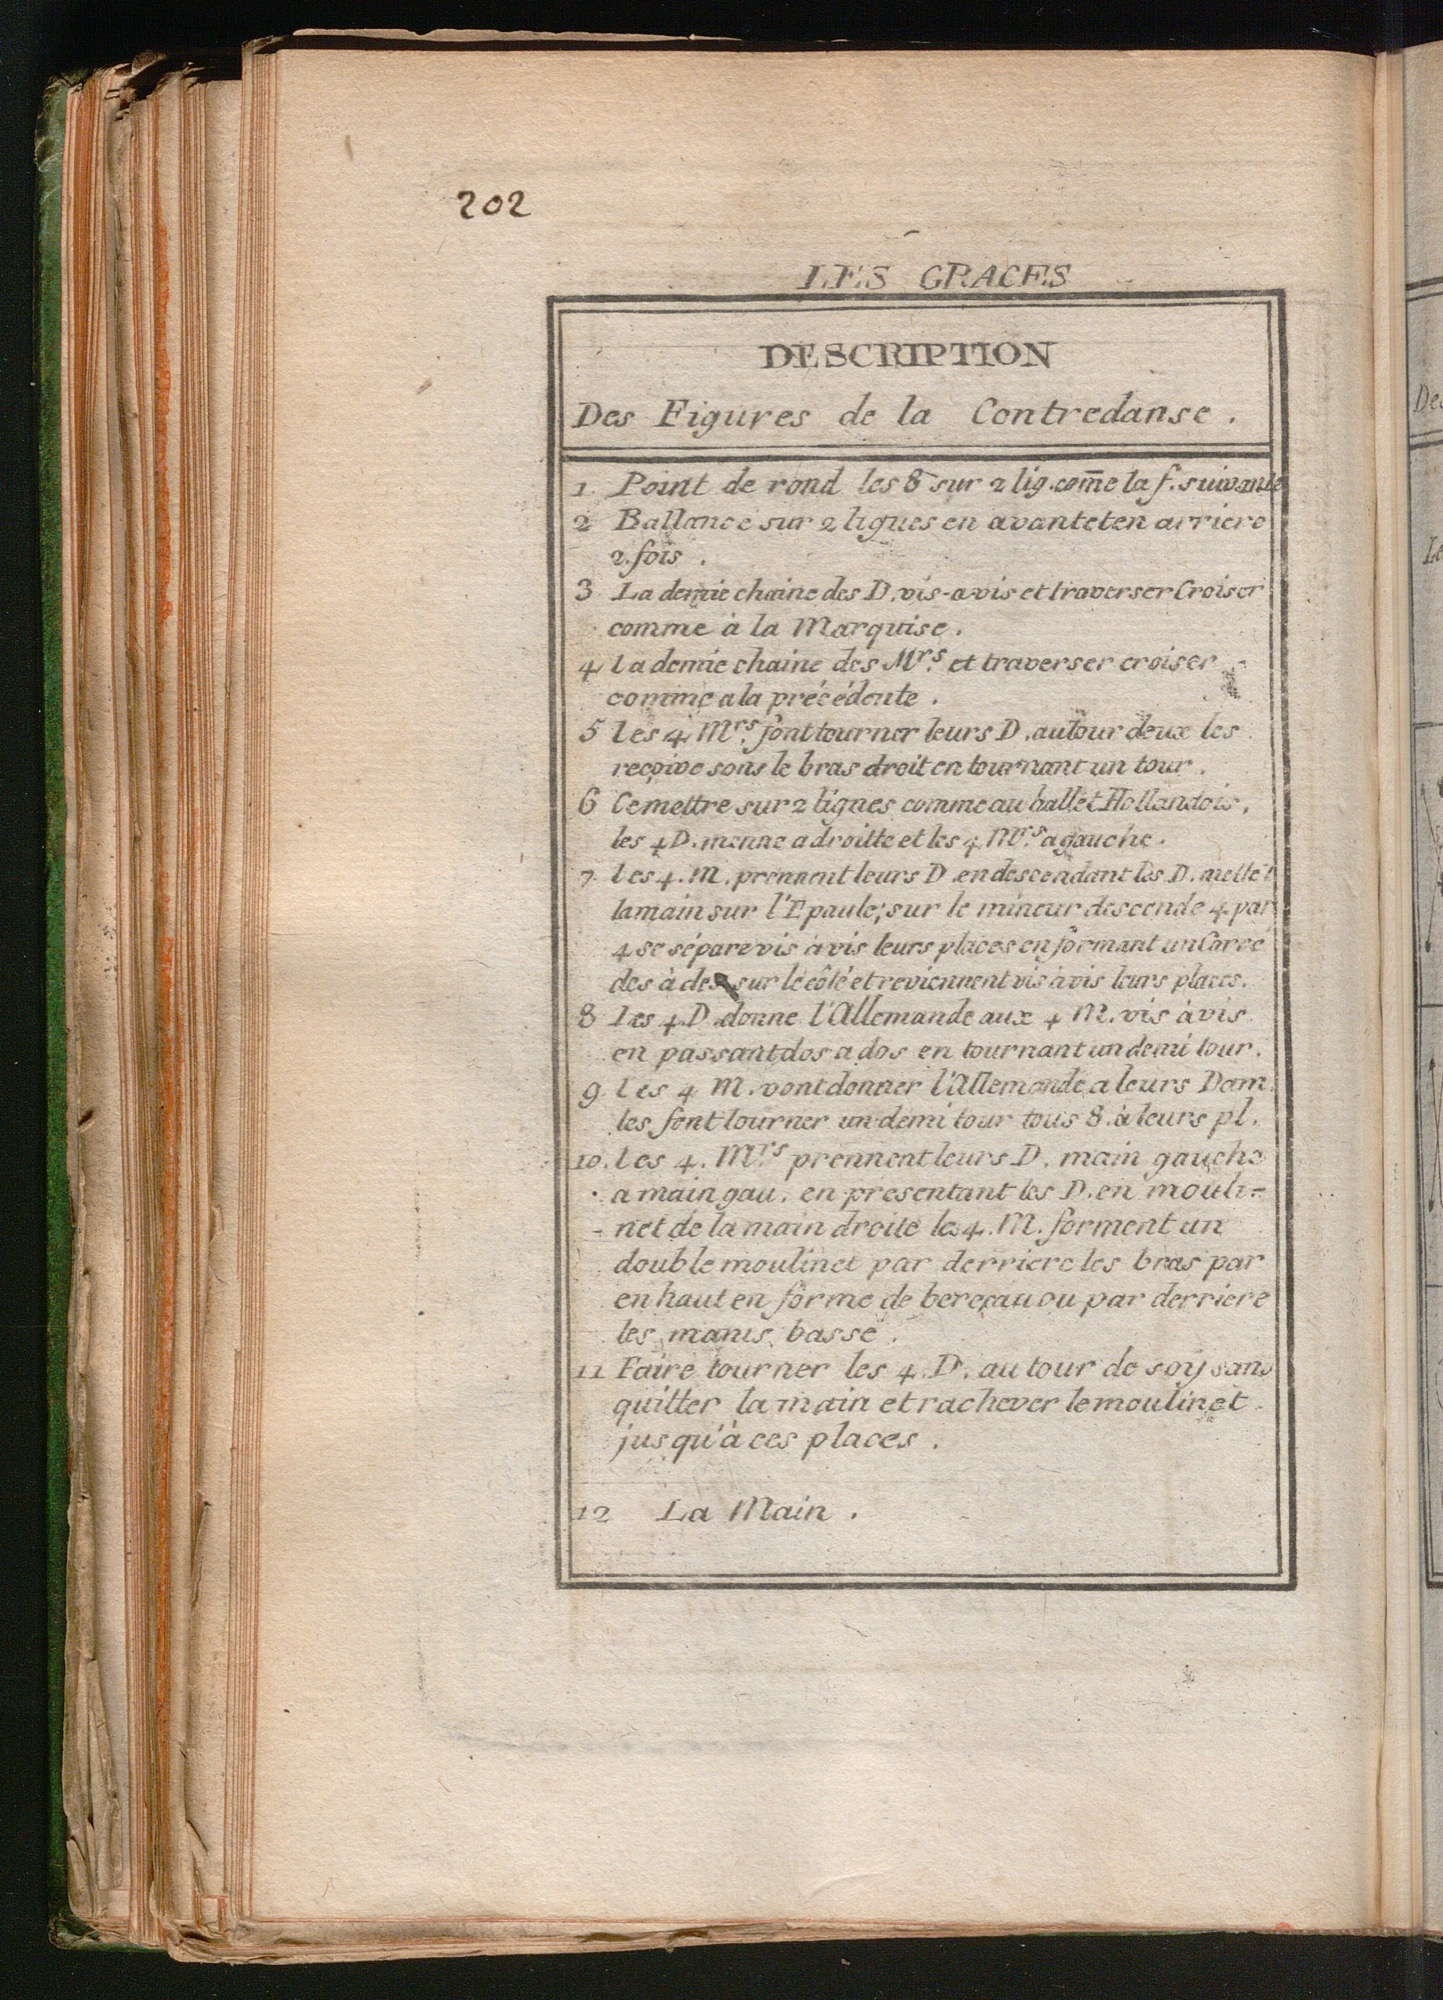 202
LES GRACES
DESCRIPTION
Des Figures de la Contredanse .
1. Point de rond les 8 sur 2 lig. com̄e la f. suivante
2 Ballance sur 2 lignes en avant et en arriere
2. fois .
3 La demie chaine des D. vis-avis et traverser Croiser
comme à la Marquise .
4 la demie chaine des Mrs. et traverser croiser
comme a la précédente .
5 les 4 Mrs. font tourner leurs D. autour deux les
reçoive sons le bras droit en tournant un tour .
6 Cemettre sur 2 lignes comme au ballet Hollandois,
les 4 D. menne a droitte et les 4 Mrs. a gauche .
7. les 4. M. prennent leurs D. en descendant les D. mettēt
la main sur l'Epaule; sur le mineur descende 4 par
4 se sépare vis à vis leurs places en formant un Carré
des à des sur le côté et reviennent vis à vis leurs places.
8 Les 4 D. donne l'Allemande aux 4 M. vis à vis
en passant dos a dos en tournant un demi tour .
9. les 4 M. vont donner l'Allemande a leurs Dam.
les font tourner un demi tour tous 8. à leurs pl.
10. les 4. Mrs. prennent leurs D. main gauche
a main gau. en presentant les D. en mouli=
- net de la main droite les 4. M. forment un
double moulinet par derriere les bras par
en haut en forme de berceau ou par derriere
les manis basse .
11 Faire tourner les 4 D. au tour de soy sans
quitter la main et rachever le moulinet
jusqu'à ces places .
12 La Main .
Des
Le